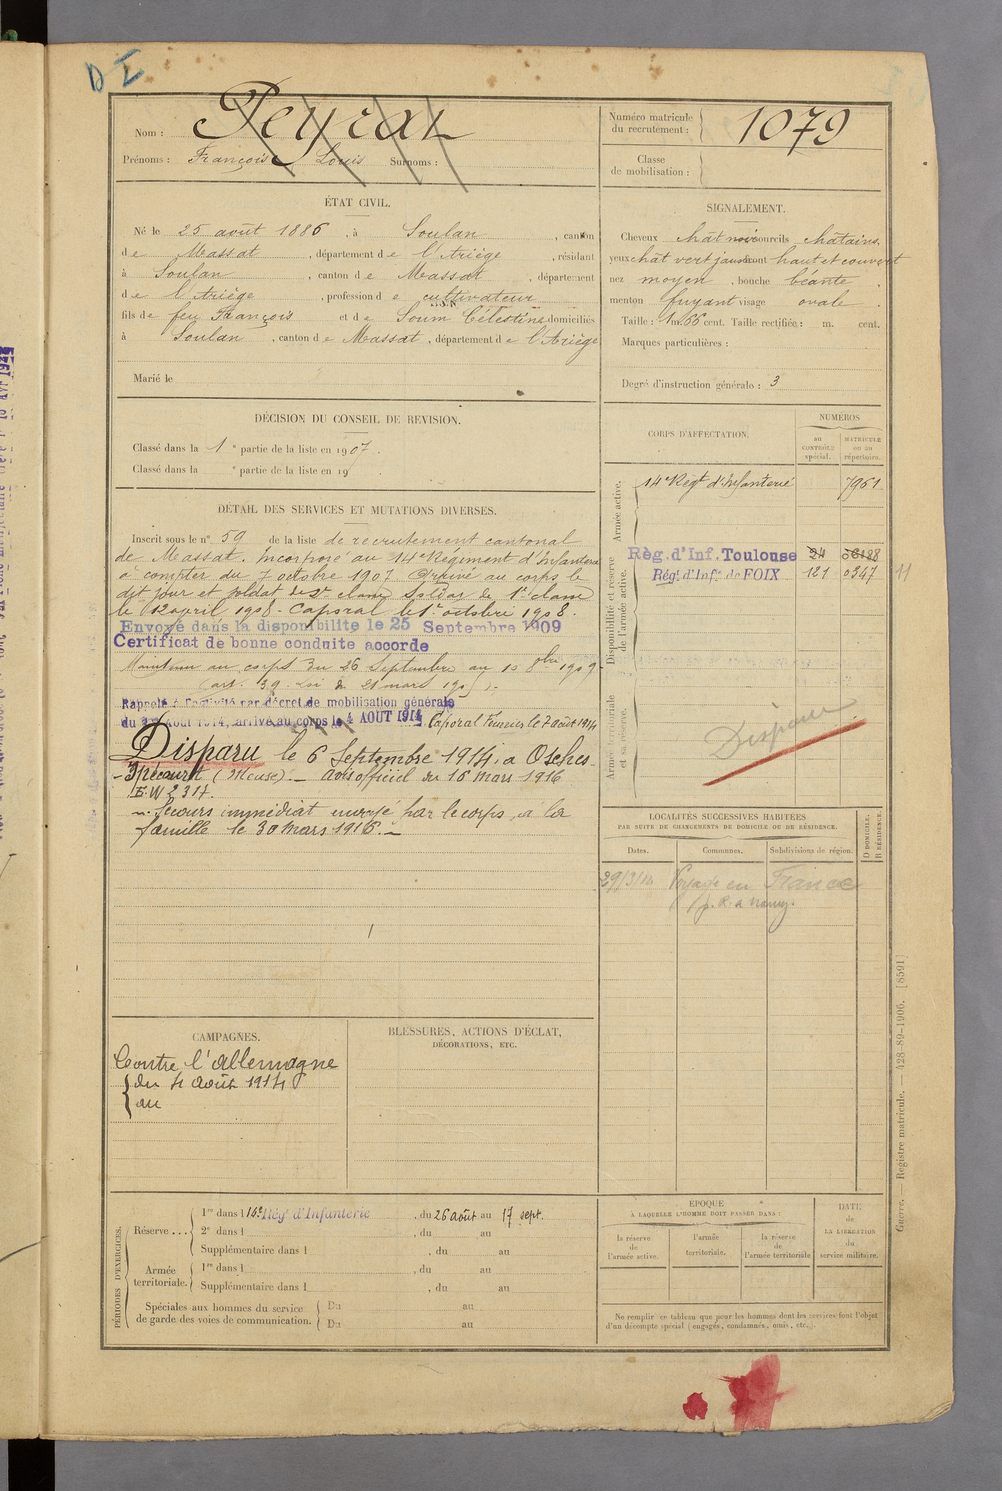 D I
Nom : Peyrat
Prénoms : François Louis Surnoms :
Numéro matricule du recrutement : 1079
Classe de mobilisation :
ÉTAT CIVIL.
Né le 25 août 1886, à Soulan, canton
de Massat, département de l'Ariège, résidant
à Soulan, canton de Massat, département
de l'Ariège, profession de cultivateur
fils de feu François et de Soum Célestine domiciliés
à Soulan, canton de Massat, département de l'Ariège
Marié le
SIGNALEMENT.
Cheveux chât noir sourcils châtains
yeux chât vert jaun front haut et couvert
nez moyen, bouche béante,
menton fuyant visage ovale
Taille : 1 m. 66 cent. Taille rectifiée : m. cent.
Marques particulières :
Degré d'instruction générale : 3
DÉCISION DU CONSEIL DE REVISION.
Classé dans la 1e partie de la liste en 1907.
Classé dans la e partie de la liste en 19
CORPS D'AFFECTATION.
NUMÉROS
au CONTRÔLE spécial.
MATRICULE ou au répertoire.
Armée active.
14e Régt d'Infanterie 7961
Disponibilité et réserve de l'armée active.
Règ. d'Inf. Toulouse 24
Régt d'Infie de FOIX 121 0347 11
Armée territoriale et sa réserve.
Disparu
DÉTAIL DES SERVICES ET MUTATIONS DIVERSES.
Inscrit sous le n° 59 de la liste de recrutement cantonal
de Massat. Incorporé au 14e Régiment d'Infanterie
à compter du 7 octobre 1907. Arrivé au corps le
dit jour et soldat de 2e classe. Soldat de 1e classe
le 12 avril 1908. Caporal le 1er octobre 1908.
Envoyé dans la disponibilité le 25 Septembre 1909
Certificat de bonne conduite accordé
Maintenu au corps du 26 Septembre au 10 8bre 1909
(art. 39 Loi du 21 mars 1905).
Rappelé à l'activité par décret de mobilisation générale
du 1er Août 1914, arrivé au corps le 4 AOUT 1914 Caporal Fourrier le 7 août 1914
Disparu le 6 Septembre 1914, à Osches-
-Ipécourt (Meuse). Avis officiel du 16 mars 1916
E.W 2317.
Secours immédiat envoyé par le corps, à la
famille le 30 mars 1916.
LOCALITÉS SUCCESSIVES HABITÉES
PAR SUITE DE CHANGEMENTS DE DOMICILE OU DE RÉSIDENCE.
Dates. Communes. Subdivisions de région. D DOMICILE. R RÉSIDENCE.
29/3/14 Voyage en France
CAMPAGNES.
Contre l'Allemagne
du 4 août 1914
au
BLESSURES, ACTIONS D'ÉCLAT,
DÉCORATIONS, ETC.
PÉRIODES D'EXERCICES.
Réserve...
1re dans l 14e Régt d'Infanterie, du 26 août au 17 sept.
2e dans l, du au
Supplémentaire dans l, du au
Armée territoriale.
1re dans l, du au
Supplémentaire dans l, du au
Spéciales aux hommes du service de garde des voies de communication.
Du au
Du au
ÉPOQUE
À LAQUELLE L'HOMME DOIT PASSER DANS :
la réserve de l'armée active.
l'armée territoriale.
la réserve de l'armée territoriale
DATE de LA LIBÉRATION du service militaire.
Ne remplir ce tableau que pour les hommes dont les services font l'objet
d'un décompte spécial (engagés, condamnés, omis, etc.).
Guerre. — Registre matricule. — 428-89-1906. [8591]